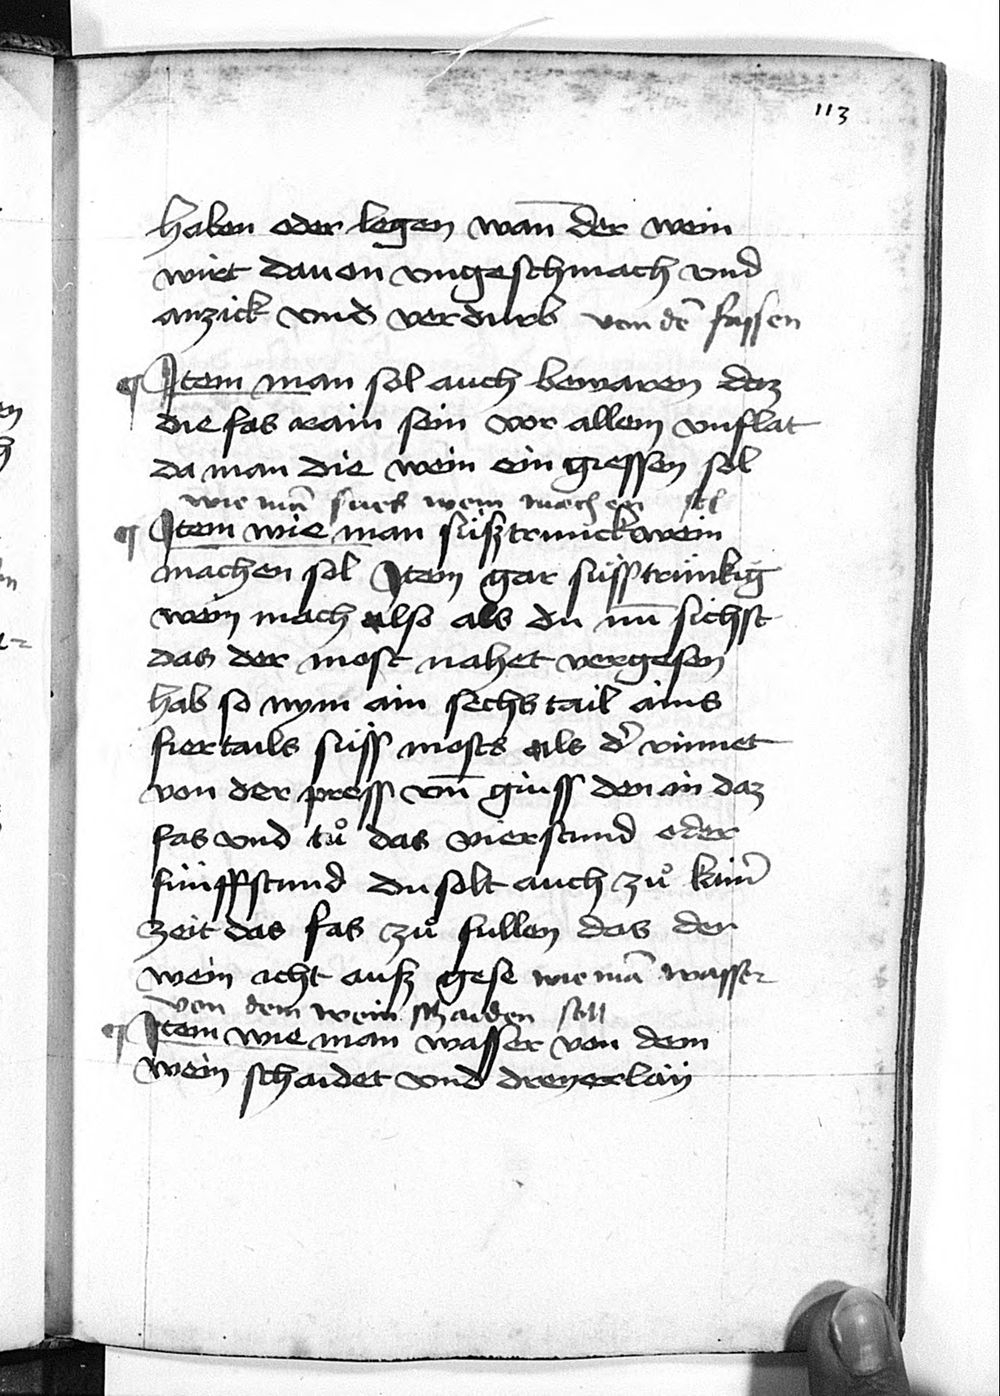 113
haben oder legen wan̄ der wein
wirt dauon vngeschmach vnd
anzick vnd verdurb von dē fassen
¶ Item man sol auch bewaren daz
die fas rain sein vor allem vnflat
da man die wein ein gressen sol
wie mā sues wein machen sol
¶ Item wie man süßtrunckwein
machen sol Item gar süsstrünkig
wein mach also als du nu᷍n sichst
das der most nahet vergesen
hab so nym ain sechstail ains
fiertails süss mosts als d' rinnet
von der press vn̄ giuss den in daz
fas vnd tuͦ das vierstund oder
fünffstund du solt auch zuͦ kain'
zeit das fas zuͦ fullen das der
wein acht auß gese wie mā wasser
von dem wein schaiden soll
¶ Item wie man wasser von dem
wein schaidet vnd dreyerlaÿ